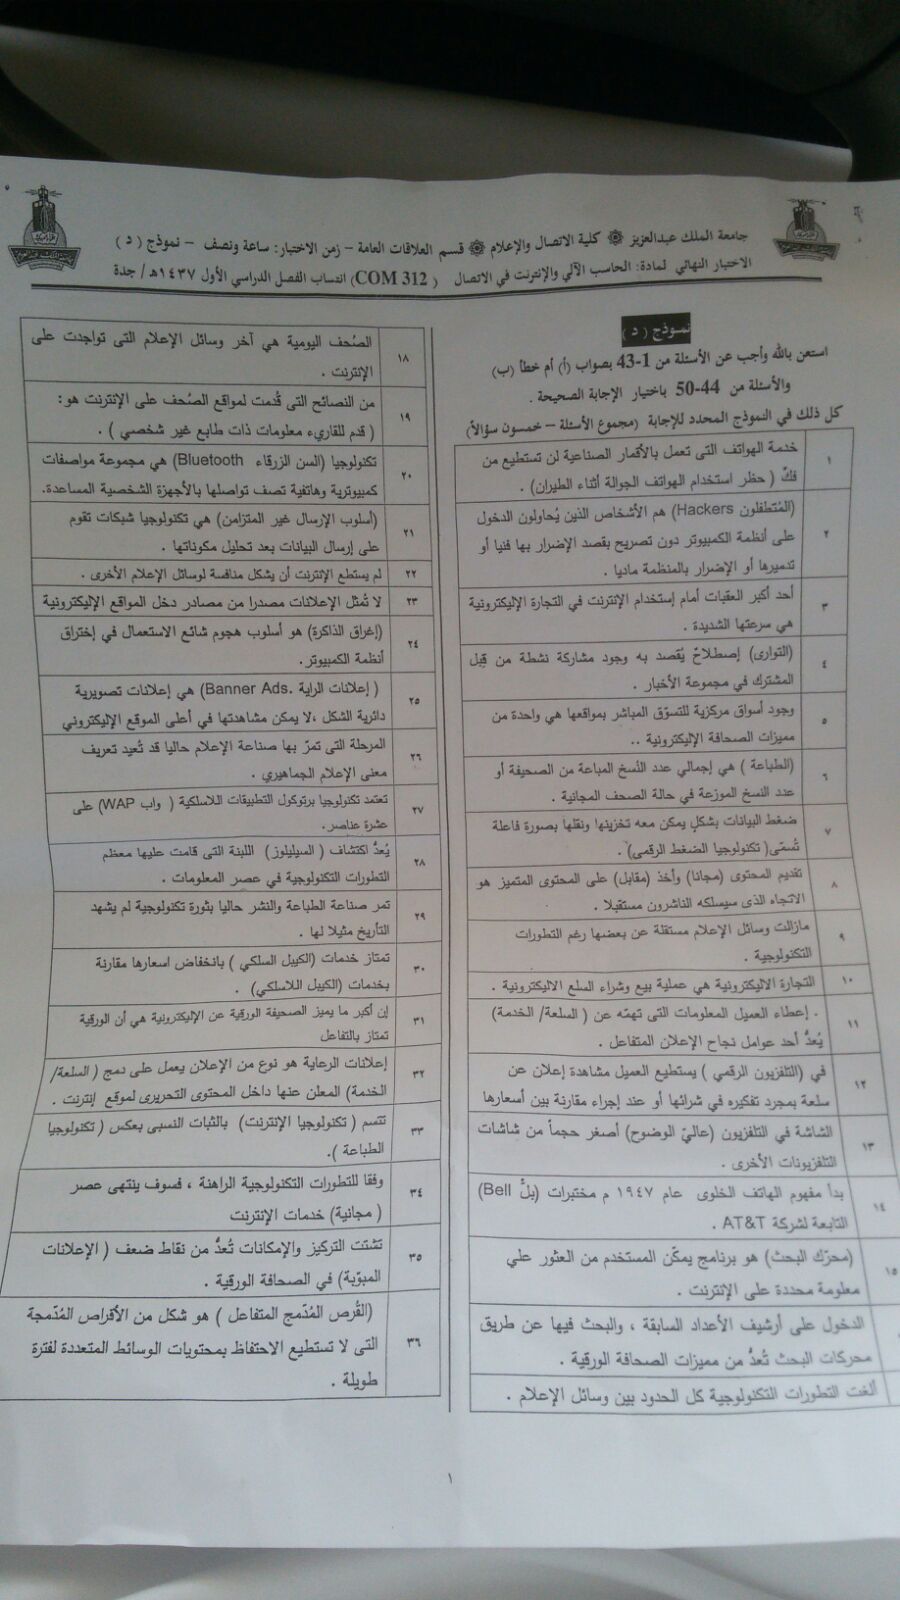 جامعة الملك عبدالعزيز ۞ كلية الاتصال والإعلام ۞ قسم العلاقات العامة – زمن الاختبار: ساعة ونصف – نموذج ( د )
الاختبار النهائي لمادة: الحاسب الآلي والإنترنت في الاتصال ( COM 312) انتساب الفصل الدراسي الأول ١٤٣٧هـ / جدة
نموذج ( د )
استعن بالله وأجب عن الأسئلة من 1-43 بصواب (أ) أم خطأ (ب)
والأسئلة من 44-50 باختيار الإجابة الصحيحة .
كل ذلك في النموذج المحدد للإجابة (مجموع الأسئلة – خمسون سؤالاً)
١ خدمة الهواتف التى تعمل بالأقمار الصناعية لن تستطيع من
فكّ ( حظر استخدام الهواتف الجوالة أثناء الطيران) .
٢ (المُتطفلون Hackers) هم الأشخاص الذين يُحاولون الدخول
على أنظمة الكمبيوتر دون تصريح بقصد الإضرار بها فنيا أو
تدميرها أو الإضرار بالمنظمة ماديا .
٣ أحد أكبر العقبات أمام إستخدام الإنترنت في التجارة الإليكترونية
هي سرعتها الشديدة .
٤ (التوارى) إصطلاحٌ يُقصد به وجود مشاركة نشطة من قِبل
المشترك في مجموعة الأخبار .
٥ وجود أسواق مركزية للتسوّق المباشر بمواقعها هي واحدة من
مميزات الصحافة الإليكترونية ..
٦ (الطباعة ) هي إجمالي عدد النُسخ المباعة من الصحيفة أو
عدد النسخ الموزعة في حالة الصحف المجانية .
٧ ضغط البيانات بشكلٍ يمكن معه تخزينها ونقلها بصورة فاعلة
تُسمّى( تكنولوجيا الضغط الرقمى) .
٨ تقديم المحتوى (مجانا) وأخذ (مقابل) على المحتوى المتميز هو
الاتجاه الذى سيسلكه الناشرون مستقبلا .
٩ مازالت وسائل الإعلام مستقلة عن بعضها رغم التطورات
التكنولوجية .
١٠ التجارة الاليكترونية هي عملية بيع وشراء السلع الاليكترونية .
١١ . إعطاء العميل المعلومات التى تهمّه عن ( السلعة/ الخدمة)
يُعدُّ أحد عوامل نجاح الإعلان المتفاعل .
١٢ في (التلفزيون الرقمي ) يستطيع العميل مشاهدة إعلان عن
سلعة بمجرد تفكيره في شرائها أو عند إجراء مقارنة بين أسعارها
١٣ الشاشة في التلفزيون (عاليّ الوضوح) أصغر حجماً من شاشات
التلفزيونات الأخرى .
١٤ بدأ مفهوم الهاتف الخلوى عام ١٩٤٧ م مختبرات (بلُّ Bell)
التابعة لشركة AT&T .
١٥ (محرّك البحث) هو برنامج يمكّن المستخدم من العثور علي
معلومة محددة على الإنترنت .
الدخول على أرشيف الأعداد السابقة ، والبحث فيها عن طريق
محركات البحث تُعدُّ من مميزات الصحافة الورقية .
ألغت التطورات التكنولوجية كل الحدود بين وسائل الإعلام .
١٨ الصُحف اليومية هي آخر وسائل الإعلام التى تواجدت على
الإنترنت .
١٩ من النصائح التى قُدمت لمواقع الصُحف على الإنترنت هو:
( قدم للقاريء معلومات ذات طابع غير شخصي ) .
٢٠ تكنولوجيا (السن الزرقاء Bluetooth) هي مجموعة مواصفات
كمبيوترية وهاتفية تصف تواصلها بالأجهزة الشخصية المساعدة.
٢١ (أسلوب الإرسال غير المتزامن) هي تكنولوجيا شبكات تقوم
على إرسال البيانات بعد تحليل مكوناتها .
٢٢ لم يستطع الإنترنت أن يشكل منافسة لوسائل الإعلام الأخرى .
٢٣ لا تُمثل الإعلانات مصدرا من مصادر دخل المواقع الإليكترونية
٢٤ (إغراق الذاكرة) هو أسلوب هجوم شائع الاستعمال في إختراق
أنظمة الكمبيوتر.
٢٥ ( إعلانات الراية .Banner Ads) هي إعلانات تصويرية
دائرية الشكل ،لا يمكن مشاهدتها في أعلى الموقع الإليكتروني
٢٦ المرحلة التى تمرّ بها صناعة الإعلام حاليا قد تُعيد تعريف
معنى الإعلام الجماهيري .
٢٧ تعتمد تكنولوجيا برتوكول التطبيقات اللاسلكية ( واب WAP) على
عشرة عناصر.
٢٨ يُعدُّ اكتشاف ( السيليلوز) اللبنة التى قامت عليها معظم
التطورات التكنولوجية في عصر المعلومات .
٢٩ تمر صناعة الطباعة والنشر حاليا بثورة تكنولوجية لم يشهد
التأريخ مثيلا لها .
٣٠ تمتاز خدمات (الكيبل السلكي ) بانخفاض اسعارها مقارنة
بخدمات (الكيبل اللاسلكي) .
٣١ إن أكبر ما يميز الصحيفة الورقية عن الإليكترونية هي أن الورقية
تمتاز بالتفاعل
٣٢ إعلانات الرعاية هو نوع من الإعلان يعمل على دمج ( السلعة/
الخدمة) المعلن عنها داخل المحتوى التحريرى لموقع إنترنت .
٣٣ تتسم ( تكنولوجيا الإنترنت) بالثبات النسبى بعكس ( تكنولوجيا
الطباعة ).
٣٤ وفقا للتطورات التكنولوجية الراهنة ، فسوف ينتهى عصر
( مجانية) خدمات الإنترنت
٣٥ تشتت التركيز والإمكانات تُعدُّ من نقاط ضعف ( الإعلانات
المبوّبة) في الصحافة الورقية .
٣٦ (القُرص المُدّمج المتفاعل ) هو شكل من الأقراص المُدّمجة
التى لا تستطيع الاحتفاظ بمحتويات الوسائط المتعددة لفترة
طويلة .
١